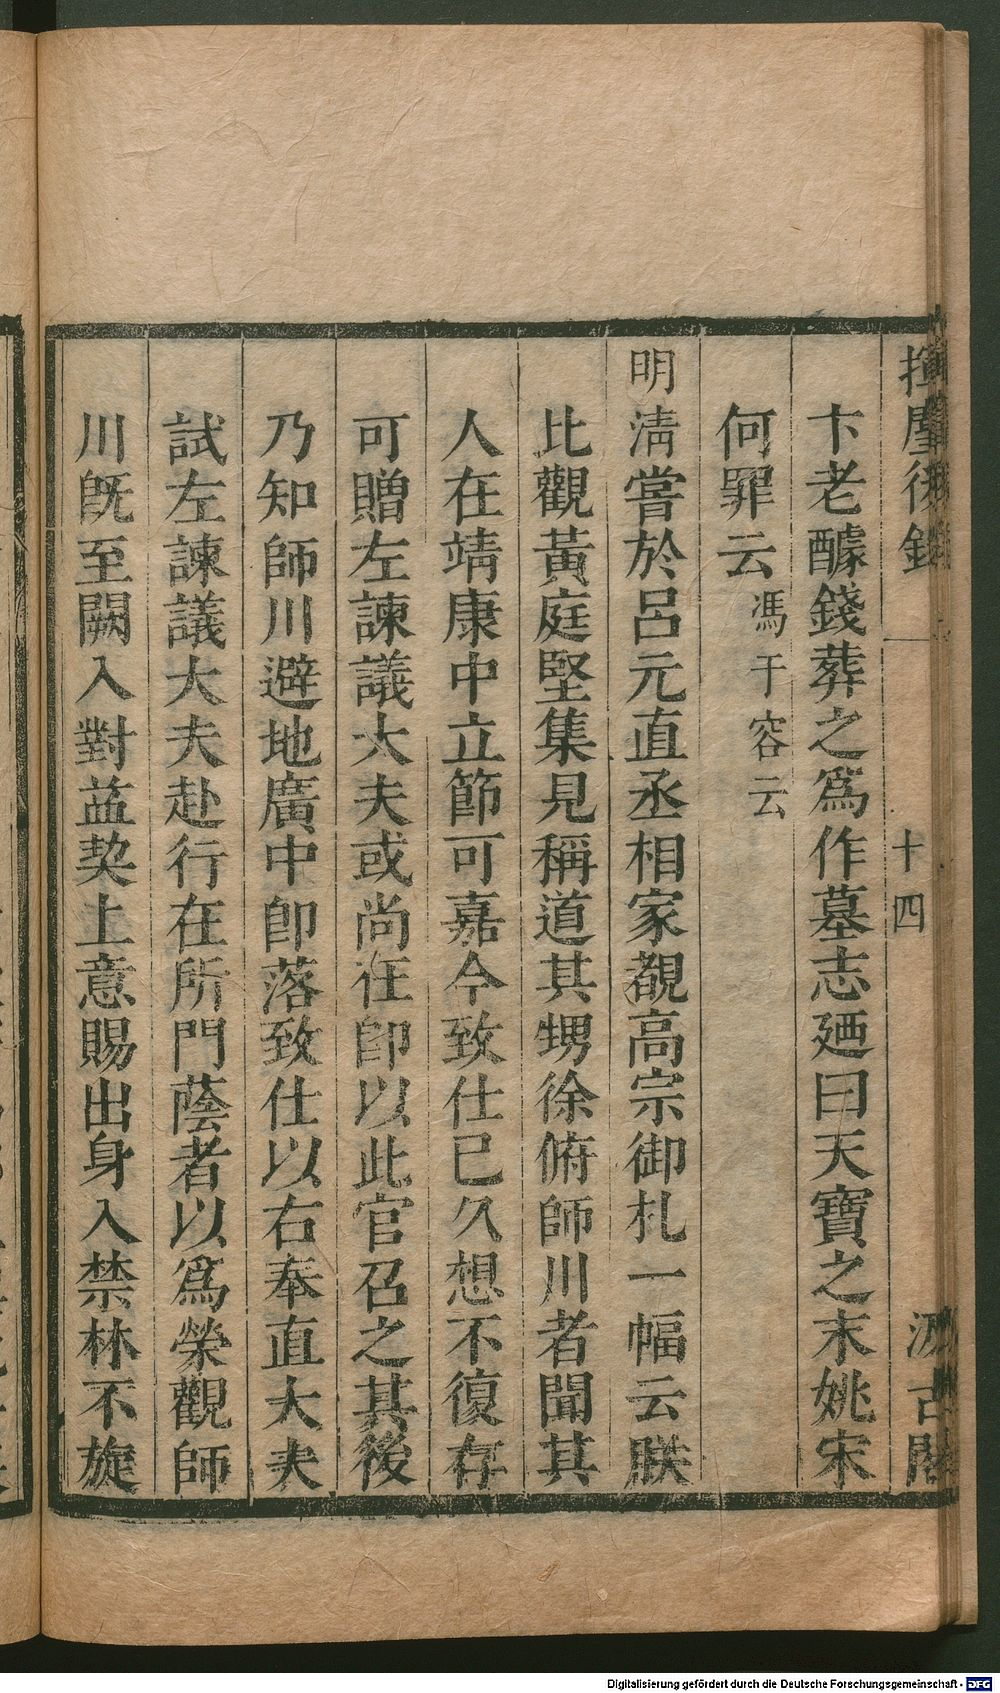 揮麈後錄
十四
汲古閣
卞老醵錢葬之爲作墓志廼曰天寶之末姚宋
何罪云馮于容云
明清嘗於呂元直丞相家覩高宗御札一幅云朕
比觀黃庭堅集見稱道其甥徐俯師川者聞其
人在靖康中立節可嘉今致仕已久想不復存
可贈左諫議大夫或尚在卽以此官召之其後
乃知師川避地廣中卽落致仕以右奉直大夫
試左諫議大夫赴行在所門蔭者以爲榮觀師
川旣至闕入對益契上意賜出身入禁林不旋
Digitalisierung gefördert durch die Deutsche Forschungsgemeinschaft - DFG